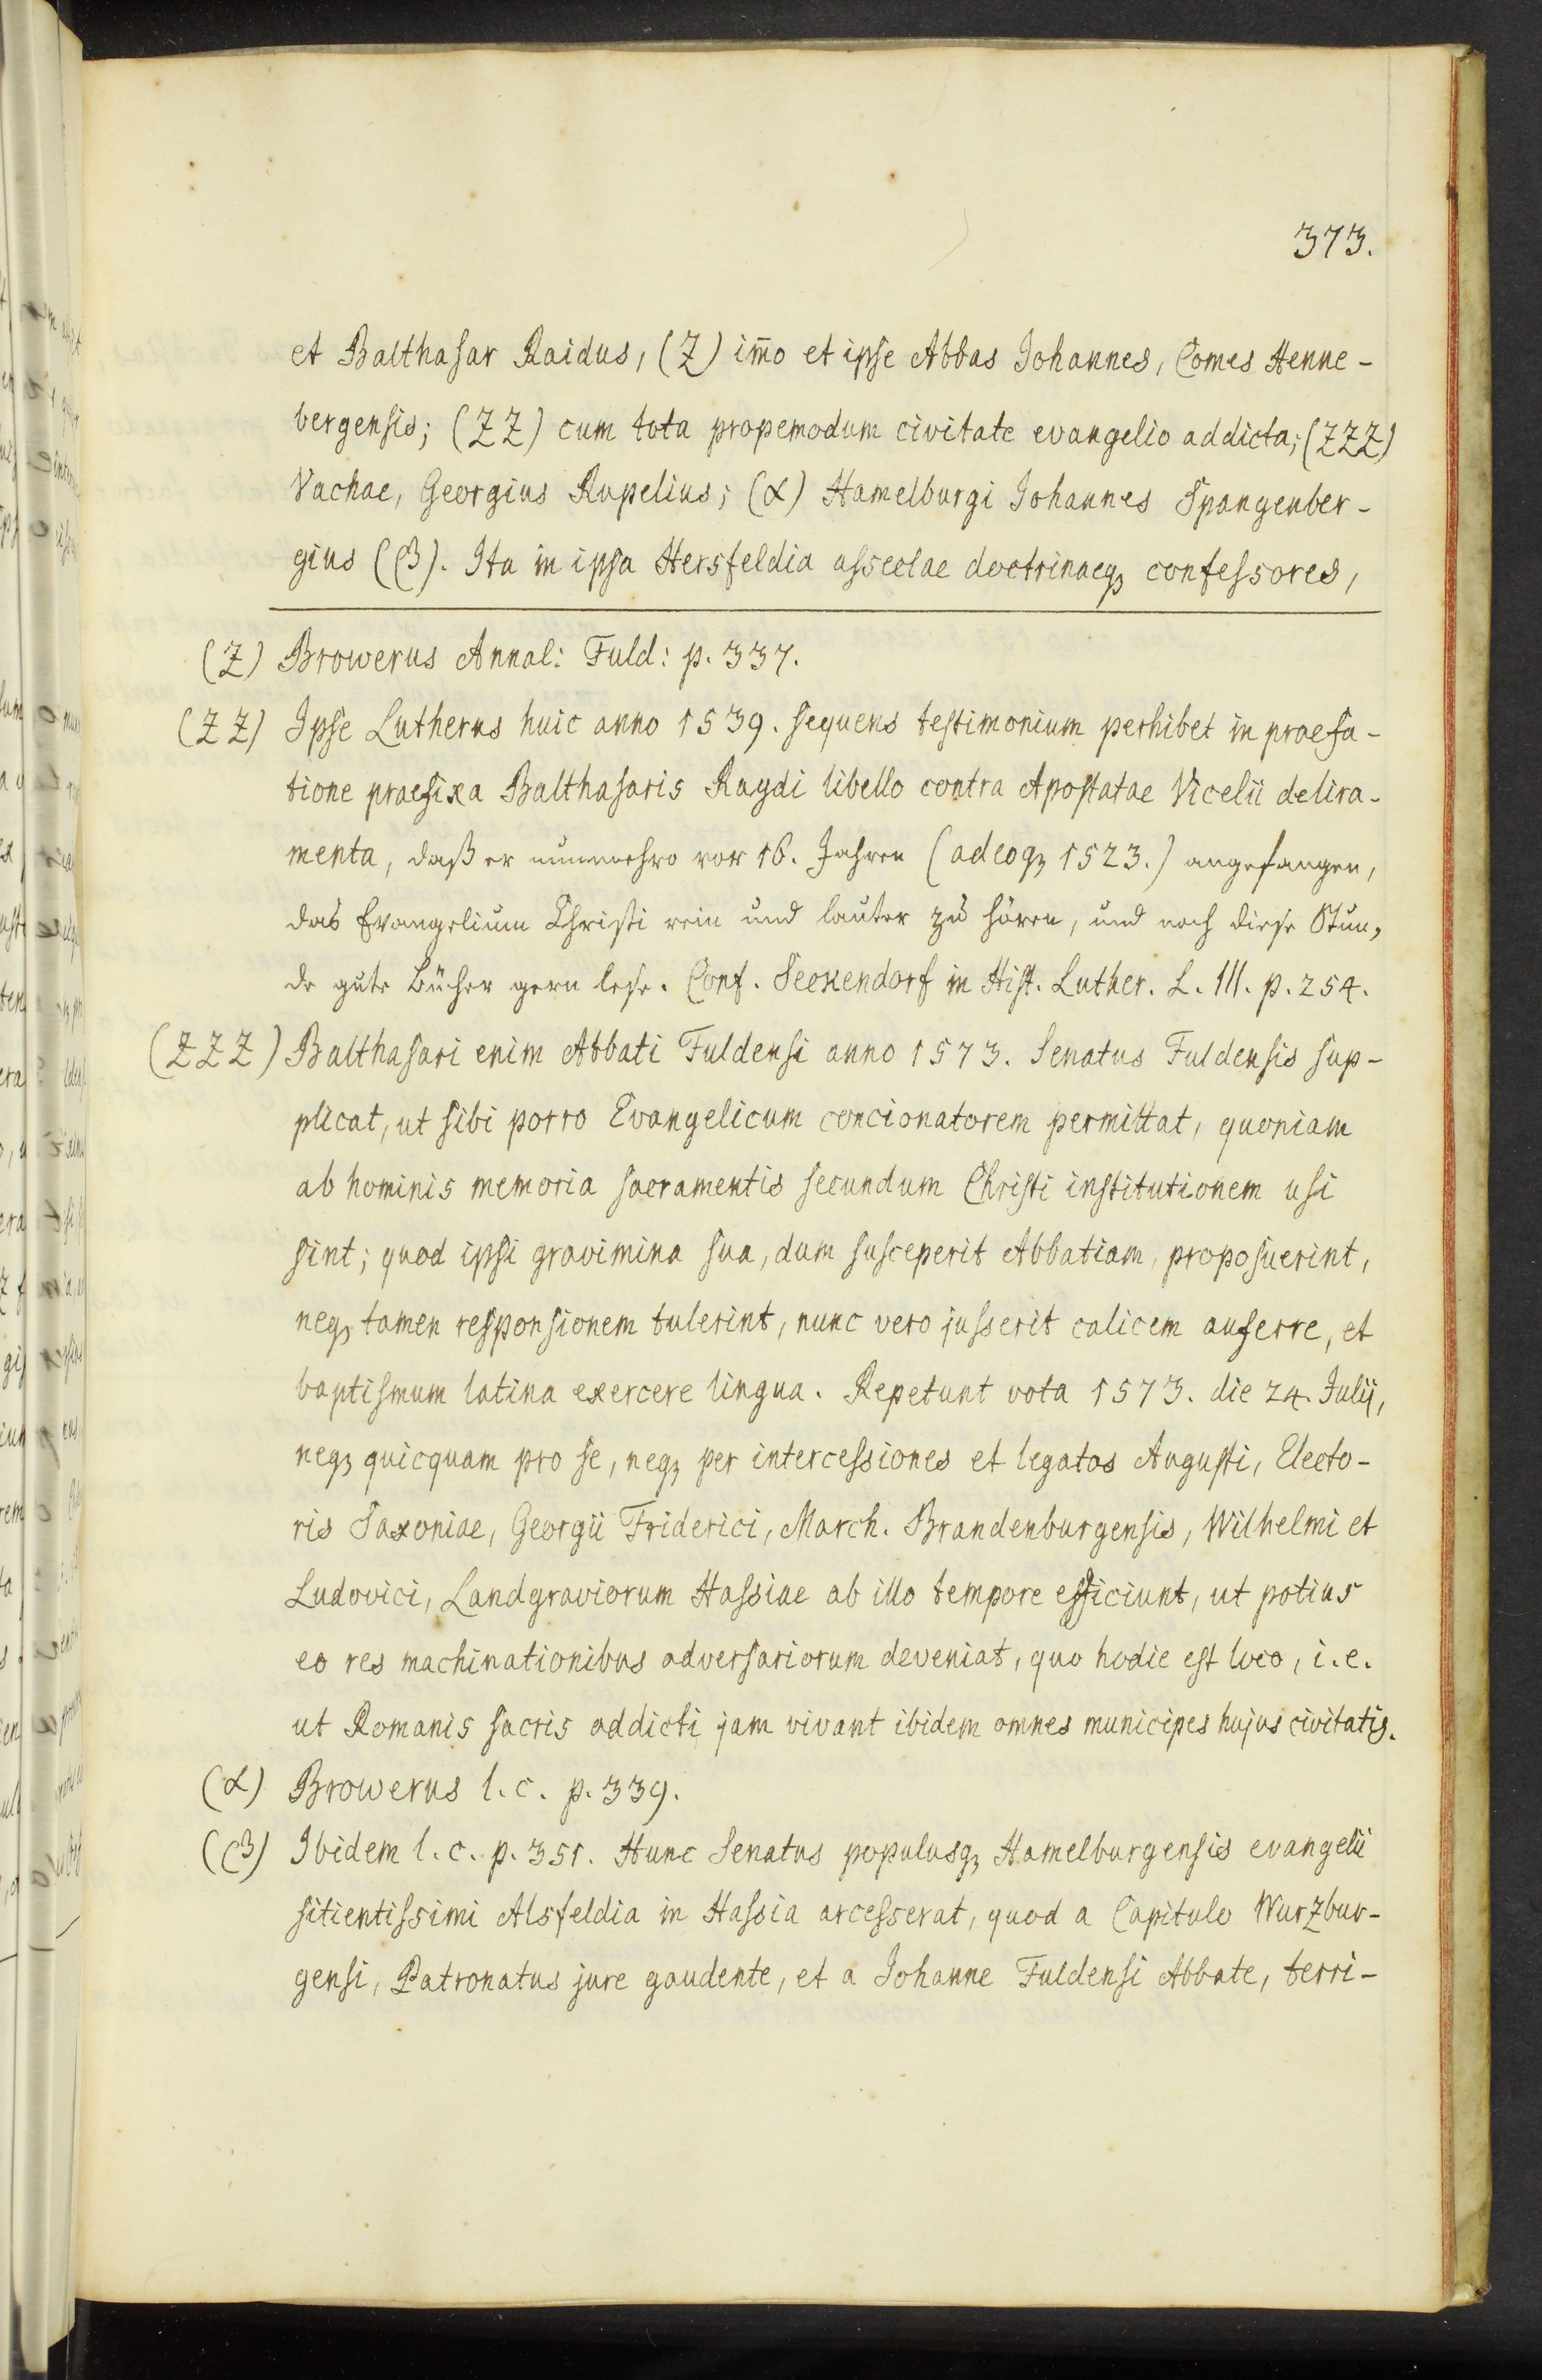 373.
et Balthasar Raidus, (Z) im̄o et ipse Abbas Johannes, Comes Henne-
bergensis; (ZZ) cum tota propemodum civitate evangelio addicta; (ZZZ)
Vachae, Georgius Rupelius; (α) Hamelburgi Johannes Spangenber-
gius (β). Ita in ipsa Hersfeldia asseclae doctrinaeqꝫ confessores,
(Z) Browerus Annal: Fuld: p. 337.
(ZZ) Ipse Lutherus huic anno 1539. sequens testimonium perhibet in praefa-
tione praefixa Balthasaris Raydi libello contra Apostatae Vicelii delira-
menta, daß er nunmehro vor 16. Jahren (adeoqꝫ 1523.) angefangen,
das Evangelium Christi rein und lauter zu hören, und noch diese Stun-
de gute Bücher gern lese. Conf. Seckendorf in Hist. Luther. L. III. p. 254.
(ZZZ) Balthasari enim Abbati Fuldensi anno 1573. Senatus Fuldensis sup-
plicat, ut sibi porro Evangelicum concionatorem permittat, quoniam
ab hominis memoria sacramentis secundum Christi institutionem usi
sint; quod ipsi gravimina sua, dum susceperit Abbatiam, proposuerint,
neqꝫ tamen responsionem tulerint, nunc vero jusserit calicem auferre, et
baptismum latina exercere lingua. Repetunt vota 1573. die 24. Julii,
neqꝫ quicquam pro se, neqꝫ per intercessiones et legatos Augusti, Electo-
ris Saxoniae, Georgii Friderici, March. Brandenburgensis, Wilhelmi et
Ludovici, Landgraviorum Hassiae ab illo tempore efficiunt, ut potius
eo res machinationibus adversariorum deveniat, quo hodie est loco, i.e.
ut Romanis sacris addicti jam vivant ibidem omnes municipes hujus civitatis.
(α) Browerus l. c. p. 339.
(β) Ibidem l. c. p. 351. Hunc Senatus populusqꝫ Hamelburgensis evangelii
sitientissimi Alsfeldia in Hassia arcesserat, quod a Capitulo Wurzbur-
gensi, Patronatus jure gaudente, et a Johanne Fuldensi Abbate, terri-